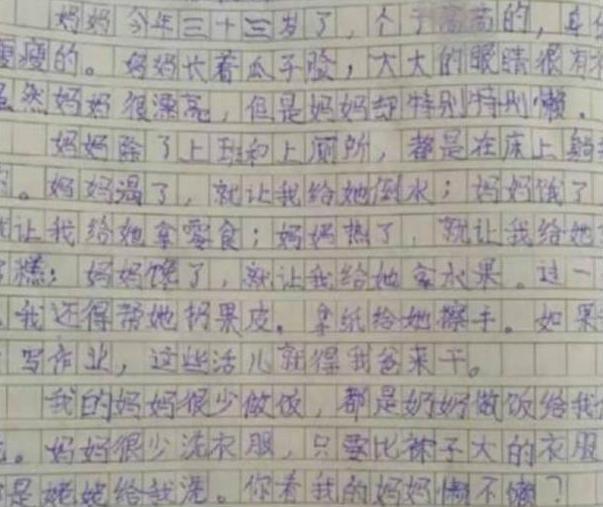 妈妈今年三十三岁了，个子高高的，身
瘦瘦的。妈妈长着瓜子脸，大大的眼睛很有
虽然妈妈很漂亮，但是妈妈却特别特别懒。
妈妈除了上班和上厕所，都是在床上躺
。妈妈渴了，就让我给她倒水；妈妈饿了
让我给她拿零食；妈妈热了，就让我给她
糕；妈妈馋了，就让我给她拿水果。过一
我还得帮她扔果皮。拿纸给她擦手。如果
写作业，这些活儿就得我爸来干。
我的妈妈很少做饭，都是奶奶做饭给我
。妈妈很少洗衣服，只要比袜子大的衣服
是姥姥给我洗。你看我的妈妈懒不懒？